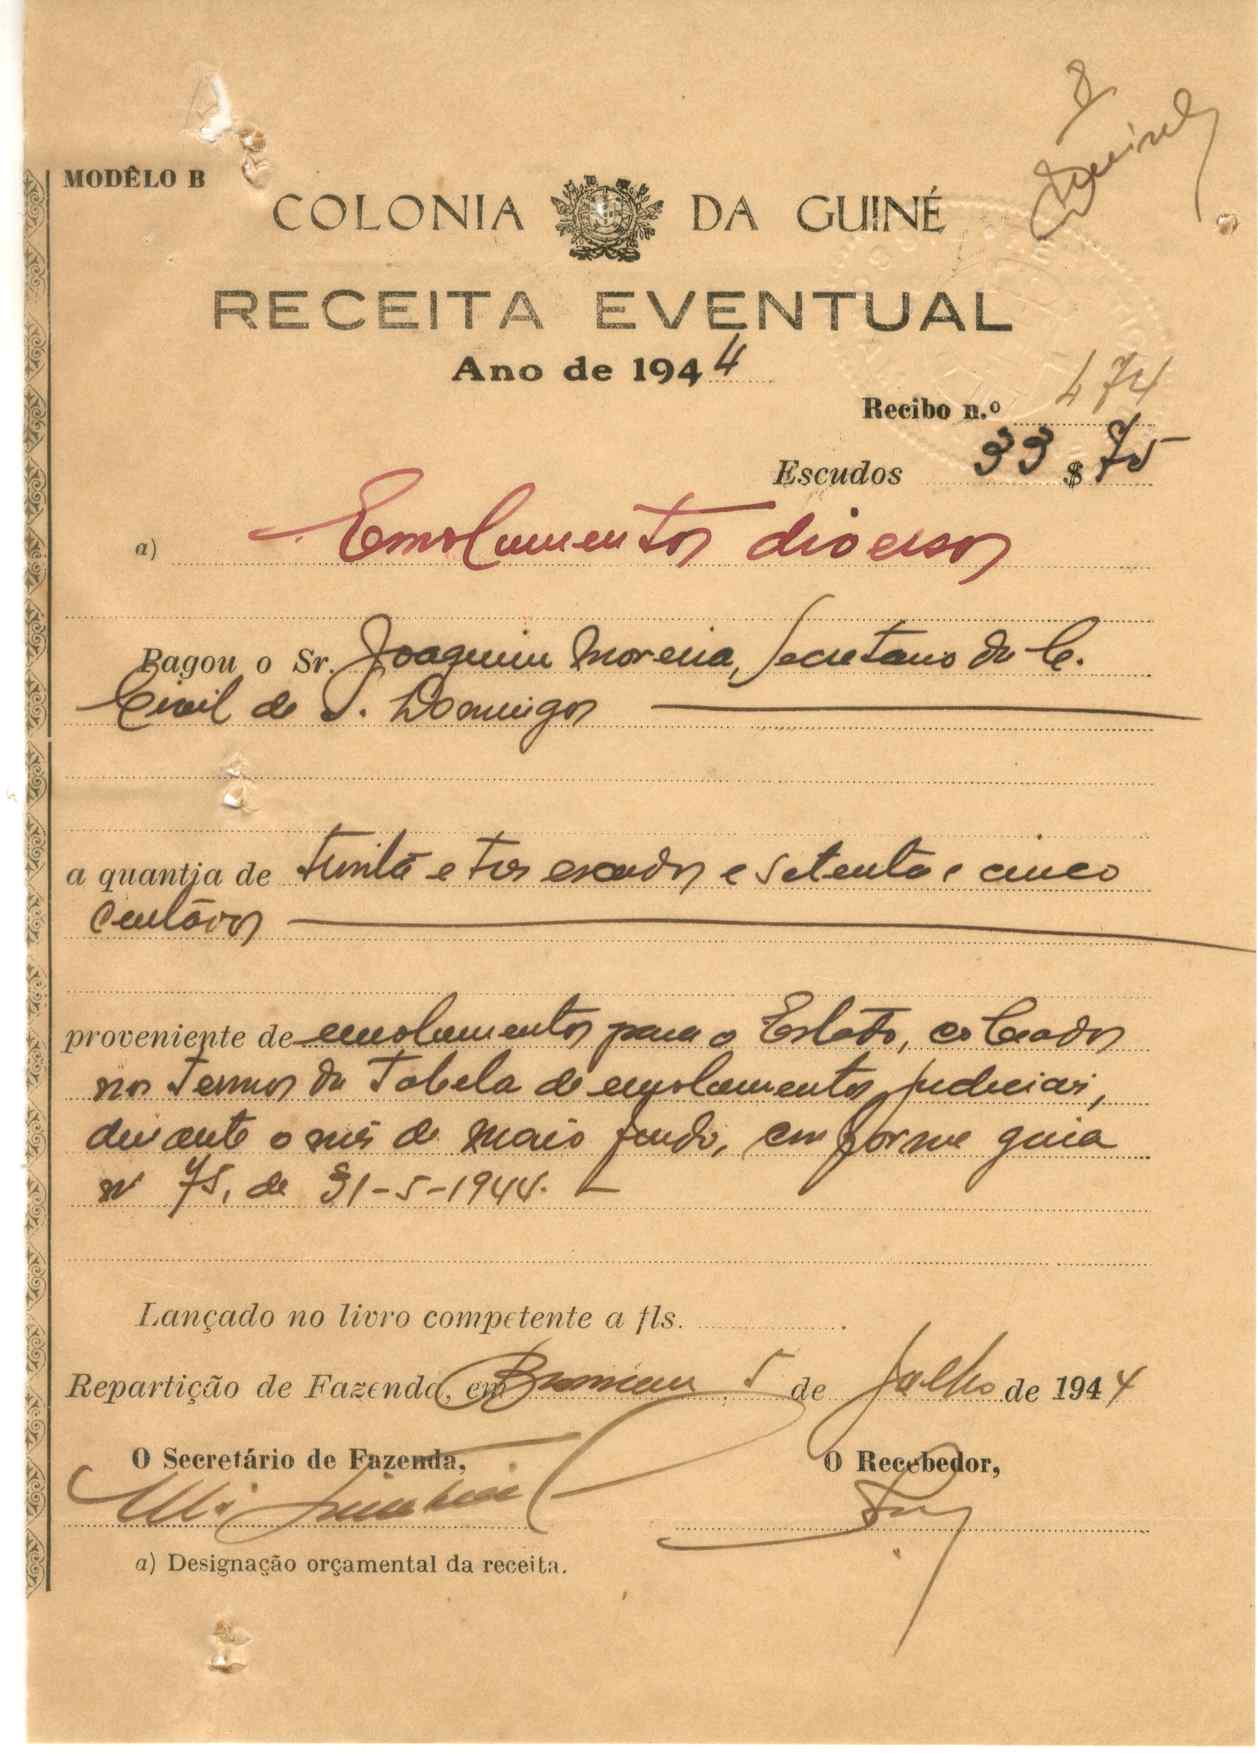 MODÊLO B
COLONIA DA GUINÉ
RECEITA EVENTUAL
Ano de 1944
Recibo n.º 474
Escudos 33$75
a) Emolumentos diversos
Pagou o Sr. Joaquim Moreira, Secretario da C.
Civil de S. Domingos
a quantia de trinta e tres escudos e setenta e cinco
centavos
proveniente de emolumentos para o Estado, cobrados
nos termos da Tabela de emolumentos judiciais,
durante o mês de Maio findo, conforme guia
nº 75, de 31-5-1944.
Lançado no livro competente a fls. .
Repartição de Fazenda, em 5 de Julho de 1944
O Secretário de Fazenda,
O Recebedor,
a) Designação orçamental da receita.